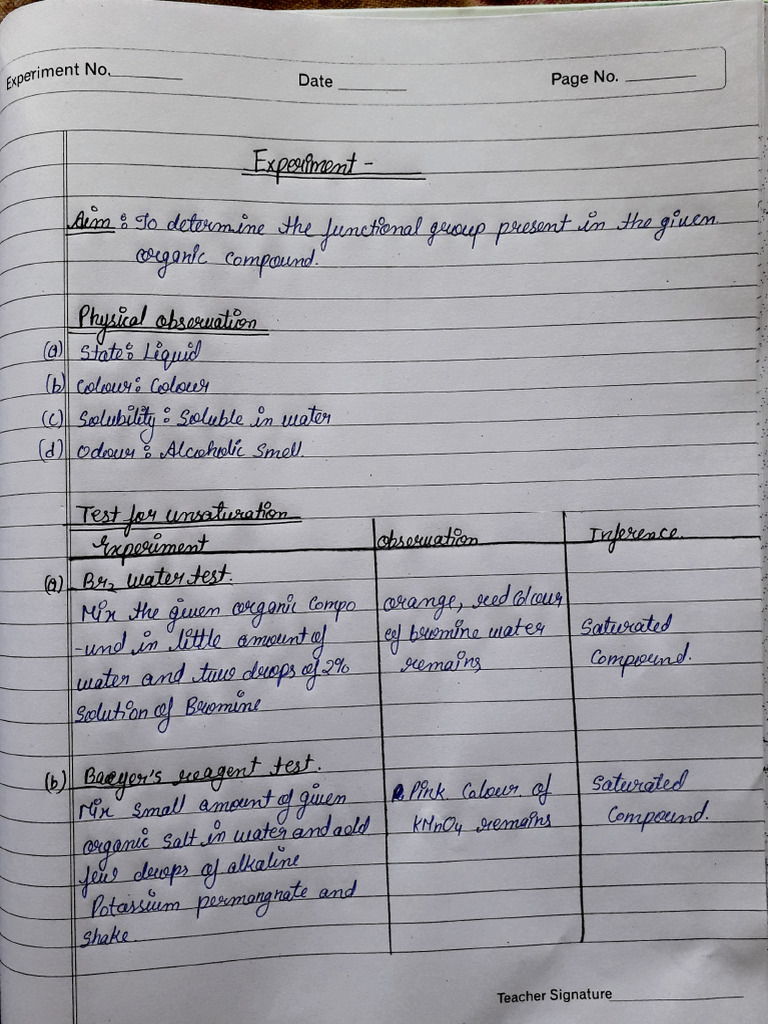 Experiment No. Date Page No.
Experiment -
Aim : To determine the functional group present in the given
organic compound.
Physical observation
(a) State : Liquid
(b) Colour : Colour
(c) Solubility : Soluble in water
(d) Odour : Alcoholic Smell.
Test for unsaturation
Experiment Observation Inference.
(a) Br2 water test.
Mix the given organic compo orange, red colour
-und in little amount of of bromine water Saturated
water and two drops of 2% remains Compound.
Solution of Bromine
(b) Baeyer's reagent test.
Mix small amount of given Pink Colour of Saturated
organic salt in water and add KMnO4 remains Compound.
few drops of alkaline
Potassium permangnate and
shake.
Teacher Signature